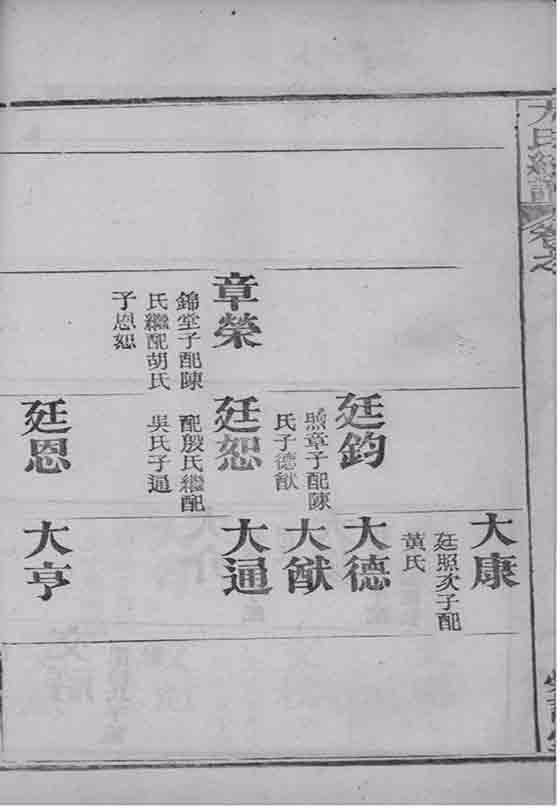 卷之
章榮
錦堂子配陳
氏繼配胡氏
子恩恕
廷鈞
煦章子配陳
氏子德猷
廷恕
配殷氏繼配
吳氏子通
廷恩
大康
廷照次子配
黃氏
大德
大猷
大通
大亨